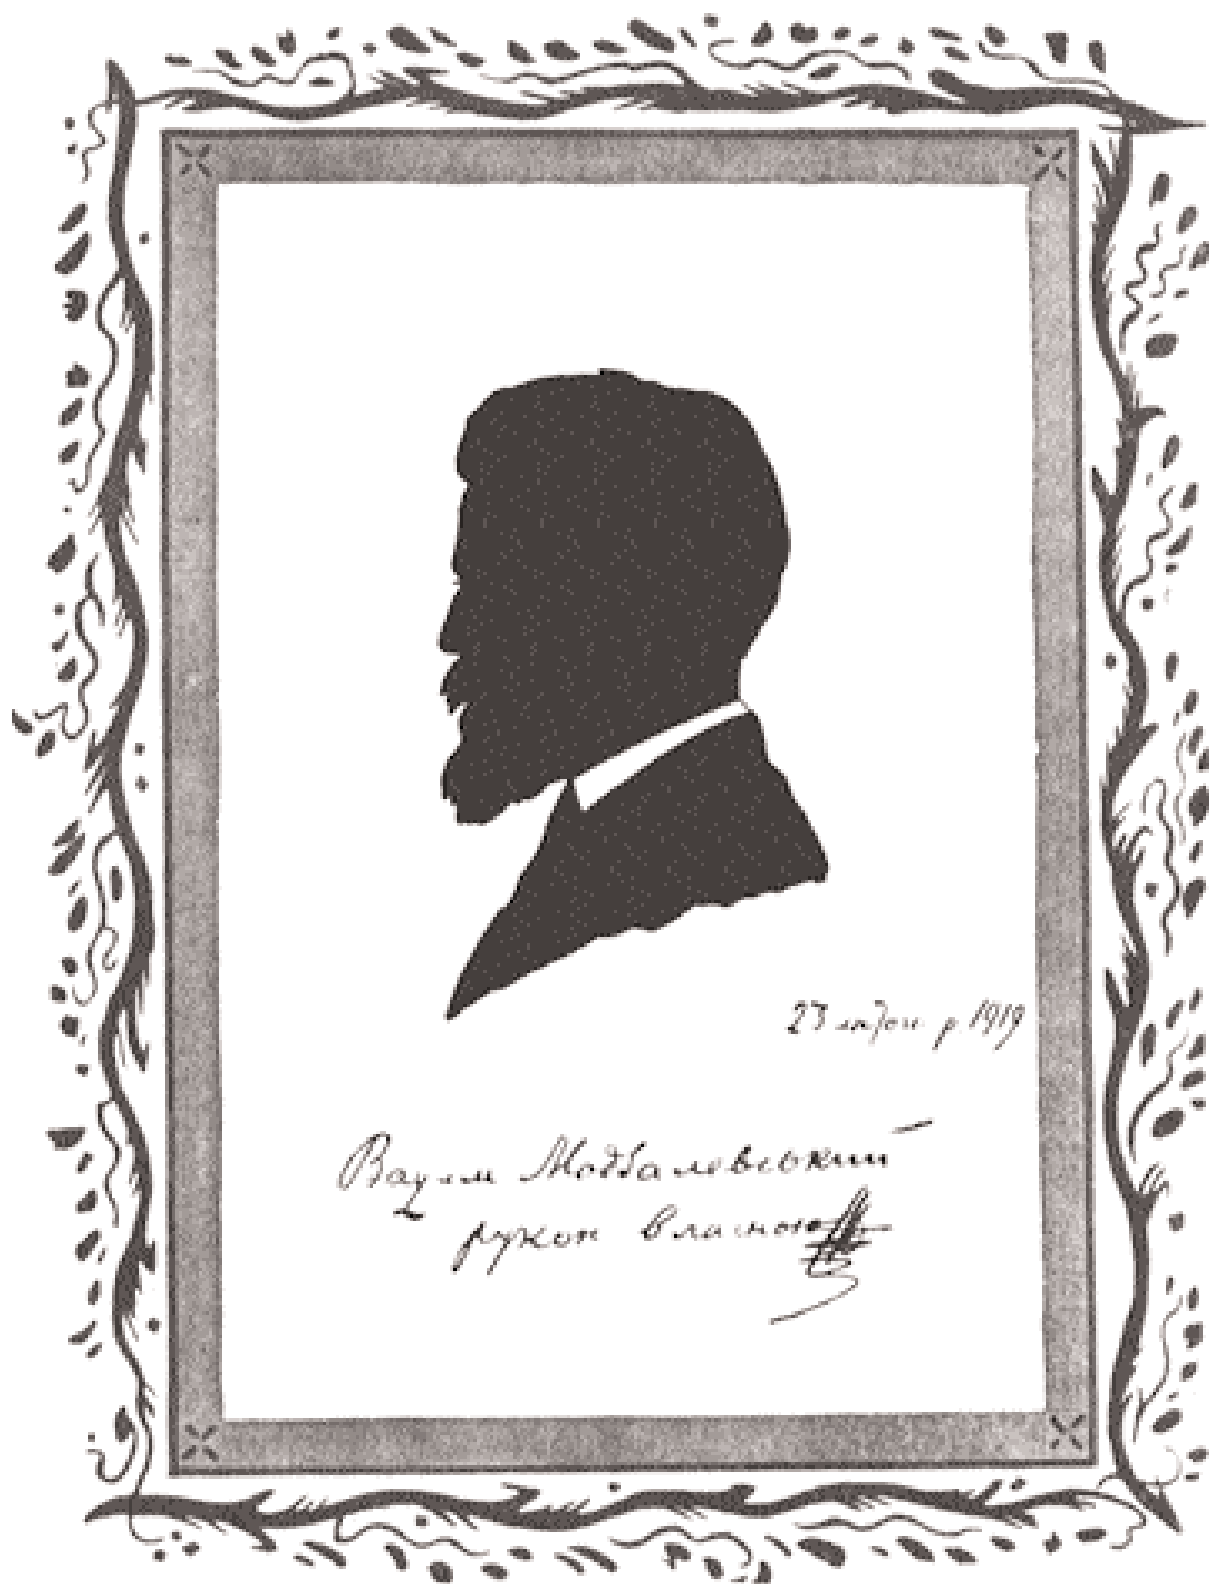 23 р. 1919
Вадим Модзалевський
рукою власною